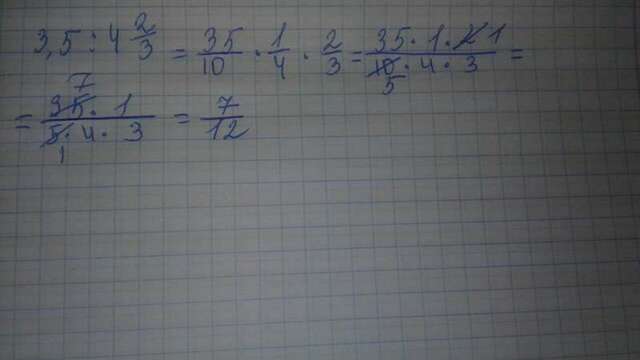 3,5 : 4 2/3 = 35/10 · 1/4 · 2/3 = 35 · 1 · 2 1 / 10 · 4 · 3 5 =
= 7 35 · 1 / 5 · 4 · 3 1 = 7/12